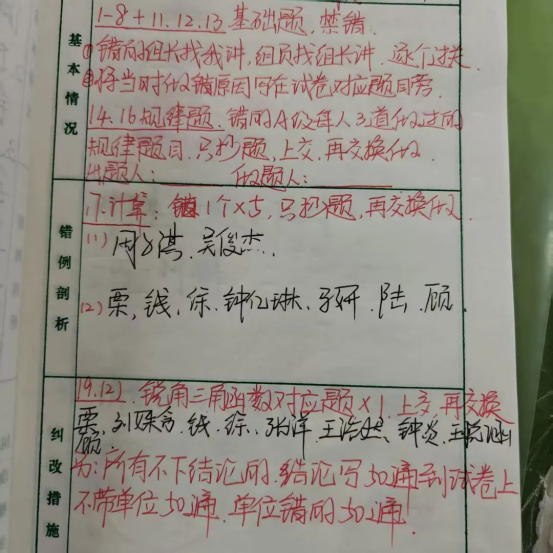 基本情况
1-8+11.12.13.基础题,禁错.
①错的组长找我讲,组员找组长讲.逐个过关
②将当时做错原因写在试卷对应题目旁.
14.16规律题.错的A级每人3道做过的
规律题目.只抄题,上交.再交换做.
出题人: 做题人:
错例剖析
17.计算:错1个×5,只抄题,再交换做.
(1) 淇.吴俊杰.
(2) 栗,钱.徐.钟亿琳.子妍.陆.顾.
纠改措施
19.(2).锐角三角函数对应题×1.上交,再交换
栗,刘 钱.徐.张洋.王浩 、钟炎.王
顾
为:所有不下结论的.结论写50遍到试卷上
不带单位50遍.单位错的50遍.